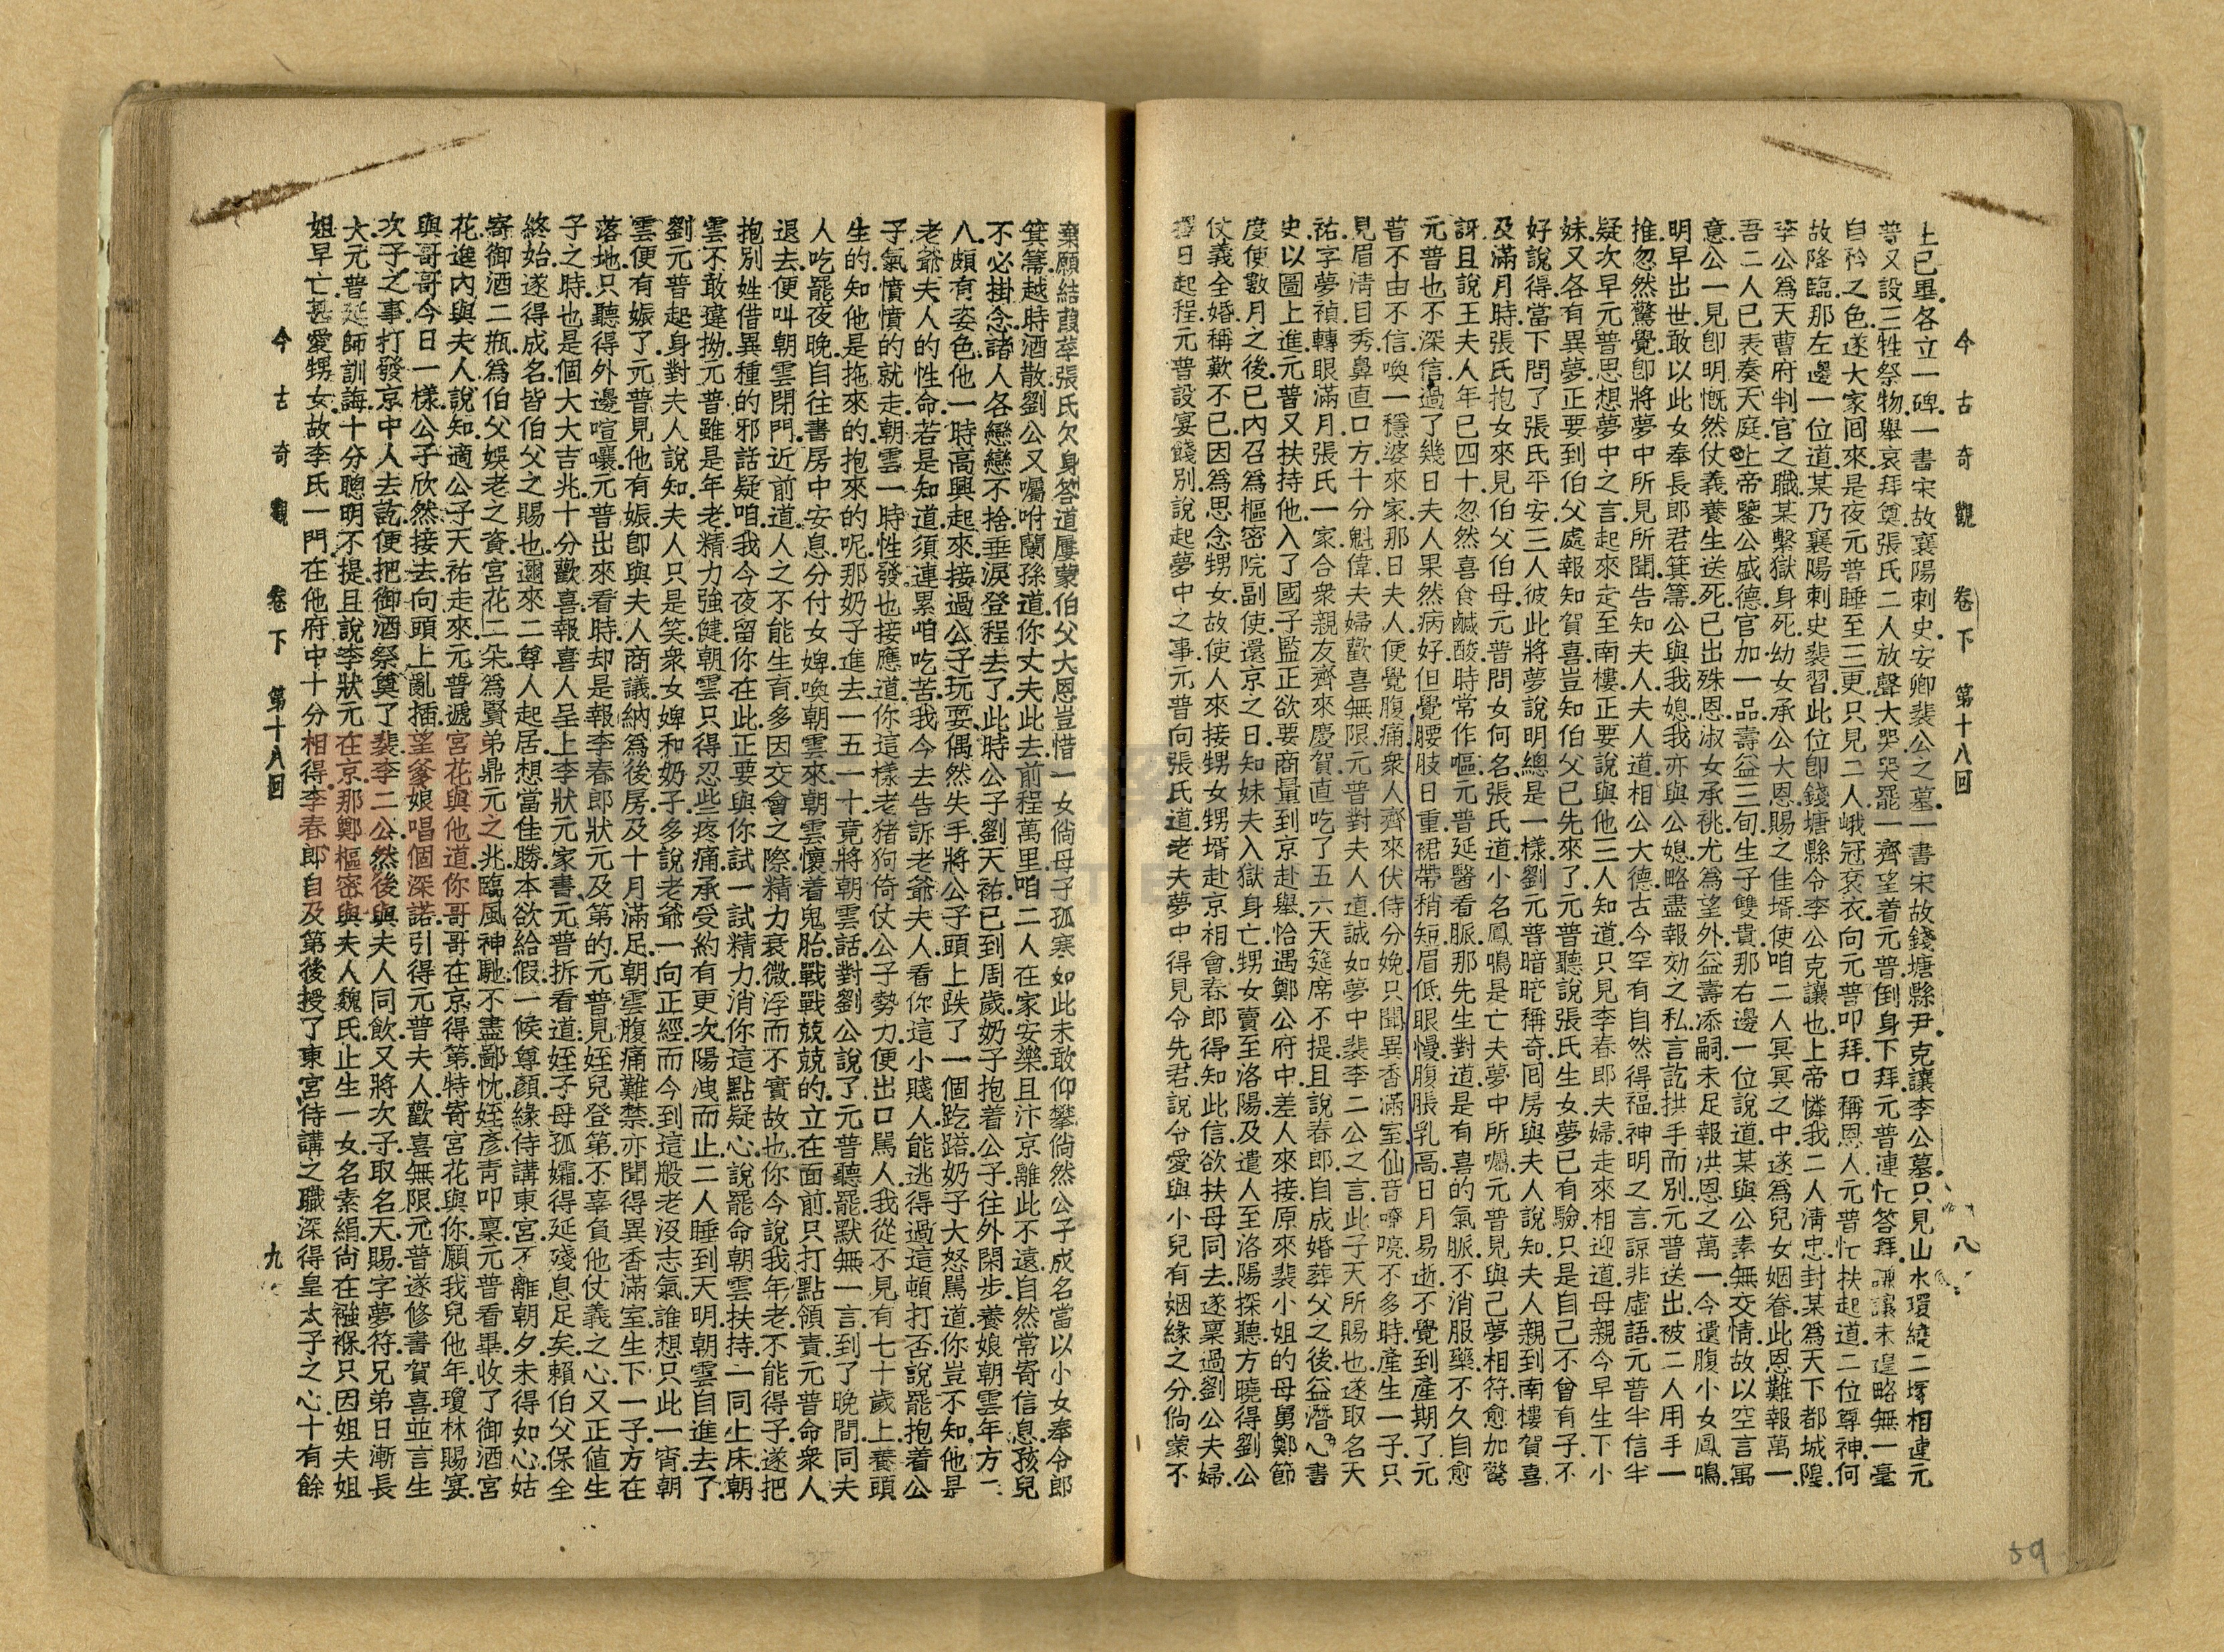 今古奇觀　卷下　第十八回　八
上已畢.各立一碑.一書宋故襄陽刺史.安卿裴公之墓.一書宋故錢塘縣尹.克讓李公墓.只見山水環繞.二塚相連.元
普又設三牲祭物.舉哀拜奠.張氏二人放聲大哭.哭罷.一齊望着元普.倒身下拜.元普連忙答拜.謙讓未遑.略無一毫
自矜之色.遂大家回來.是夜元普睡至三更.只見二人峨冠袞衣.向元普叩拜.口稱恩人.元普忙扶起道.二位尊神.何
故降臨.那左邊一位道.某乃襄陽刺史裴習.此位卽錢塘縣令李公克讓也.上帝憐我二人淸忠.封某爲天下都城隍.
李公爲天曹府判官之職.某繫獄身死.幼女承公大恩.賜之佳壻.使咱二人冥冥之中.遂爲兒女姻眷.此恩難報萬一.
吾二人已表奏天庭.上帝鑒公盛德.官加一品.壽益三旬.生子雙貴.那右邊一位說道.某與公素無交情.故以空言寓
意.公一見卽明.慨然仗義.養生送死.已出殊恩.淑女承祧.尤爲望外.益壽添嗣.未足報洪恩之萬一.今遺腹小女鳳鳴.
明早出世.敢以此女奉長郎君箕箒.公與我媳.我亦與公媳.略盡報効之私.言訖拱手而別.元普送出.被二人用手一
推.忽然驚覺.卽將夢中所見所聞.告知夫人.夫人道.相公大德.古今罕有.自然得福.神明之言.諒非虛語.元普半信半
疑.次早元普思想夢中之言.起來走至南樓.正要說與他三人知道.只見李春郎夫婦走來相迎道.母親今早生下小
妹.又各有異夢.正要到伯父處報知賀喜.豈知伯父已先來了.元普聽說張氏生女.夢已有驗.只是自己不曾有子.不
好說得.當下問了張氏平安.三人彼此將夢說明.總是一樣.劉元普暗暗稱奇.回房與夫人說知.夫人親到南樓賀喜.
及滿月時.張氏抱女來見伯父伯母.元普問女何名.張氏道.小名鳳鳴.是亡夫夢中所囑.元普見與己夢相符.愈加驚
訝.且說王夫人年已四十.忽然喜食鹹酸.時常作嘔.元普延醫看脈.那先生對道.是有喜的氣脈.不消服藥.不久自愈.
元普也不深信.過了幾日.夫人果然病好.但覺腰肢日重.裙帶稍短.眉低眼慢.腹脹乳高.日月易逝.不覺到產期了.元
普不由不信.喚一穩婆來家.那日夫人便覺腹痛.衆人齊來伏侍分娩.只聞異香滿室.仙音嘹喨.不多時產生一子.只
見眉淸目秀.鼻直口方.十分魁偉.夫婦歡喜無限.元普對夫人道.誠如夢中裴李二公之言.此子天所賜也.遂取名天
祐.字夢禎.轉眼滿月.張氏一家.合衆親友.齊來慶賀.直吃了五六天筵席.不提.且說春郎自成婚葬父之後.益潛心書
史.以圖上進.元普又扶持他入了國子監.正欲要商量到京赴舉.恰遇鄭公府中.差人來接.原來裴小姐的母舅鄭節
度使.數月之後.已內召爲樞密院副使.還京之日.知妹夫入獄身亡.甥女賣至洛陽.及遣人至洛陽探聽.方曉得劉公
仗義全婚.稱歎不已.因爲思念甥女.故使人來接甥女甥壻.赴京相會.春郎得知此信.欲扶母同去.遂稟過劉公夫婦.
擇日起程.元普設宴餞別.說起夢中之事.元普向張氏道.老夫夢中.得見令先君.說令愛與小兒有姻緣之分.倘蒙不
棄.願結葭莩.張氏欠身答道.屢蒙伯父大恩.豈惜一女.倘母子孤寒如此.未敢仰攀.倘然公子成名.當以小女奉令郎
箕箒.越時酒散.劉公又囑咐蘭孫道.你丈夫此去.前程萬里.咱二人在家安樂.且汴京離此不遠.自然常寄信息.孩兒
不必掛念.諸人各戀戀不捨.垂淚登程去了.此時公子劉天祐.已到周歲.奶子抱着公子.往外閑步.養娘朝雲.年方二
八.頗有姿色.他一時高興.起來接過公子玩耍.偶然失手.將公子頭上跌了一個趷䠀.奶子大怒罵道.你豈不知他是
老爺夫人的性命.若是知道.須連累咱吃苦.我今去告訴老爺夫人.看你這小賤人能逃得過這頓打否.說罷抱着公
子.氣憤憤的就走.朝雲一時性發也接應道.你這樣老猪狗.倚仗公子勢力.便出口罵人.我從不見有七十歲上養頭
生的.知他是拖來的抱來的呢.那奶子進去.一五一十.竟將朝雲話對劉公說了.元普聽罷.默無一言.到了晚間.同夫
人吃罷夜晚.自往書房中安息.分付女婢.喚朝雲來.朝雲懷着鬼胎.戰戰兢兢的.立在面前.只打點領責.元普命衆人
退去.便叫朝雲閉門.近前道.人之不能生育.多因交會之際.精力衰微.浮而不實故也.你今說我年老.不能得子.遂把
抱別姓借異種的邪話疑咱.我今夜留你在此.正要與你試一試精力.消你這點疑心.說罷命朝雲扶持.一同上床.朝
雲不敢違拗.元普雖是年老.精力強健.朝雲只得忍些疼痛承受.約有更次.陽洩而止.二人睡到天明.朝雲自進去了.
劉元普起身.對夫人說知.夫人只是笑.衆女婢和奶子多說.老爺一向正經.而今到這般老沒志氣.誰想只此一宵.朝
雲便有娠了.元普見他有娠.卽與夫人商議.納爲後房.及十月滿足.朝雲腹痛難禁.亦聞得異香滿室.生下一子.方在
落地.只聽得外邊喧嚷.元普出來看時.却是報李春郎狀元及第的.元普見姪兒登第.不辜負他仗義之心.又正值生
子之時.也是個大大吉兆.十分歡喜.報喜人呈上李狀元家書.元普拆看道.姪子母孤孀.得延殘息足矣.賴伯父保全
終始.遂得成名.皆伯父之賜也.邇來二尊人起居.想當佳勝.本欲給假一候尊顏.緣侍講東宮.不離朝夕.未得如心.姑
寄御酒二瓶.爲伯父娛老之資.宮花二朶.爲賢弟鼎元之兆.臨風神馳.不盡鄙忱.姪彥靑叩稟.元普看畢.收了御酒宮
花.進內與夫人說知.適公子天祐走來.元普遞宮花與他道.你哥哥在京得第.特寄宮花與你.願我兒他年瓊林賜宴.
與哥哥今日一樣.公子欣然接去.向頭上亂插.望爹娘唱個深諾.引得元普夫人歡喜無限.元普遂修書賀喜.並言生
次子之事.打發京中人去訖.便把御酒祭奠了裴李二公.然後與夫人同飮.又將次子取名天賜.字夢符.兄弟日漸長
大.元普延師訓誨.十分聰明.不提.且說李狀元在京.那鄭樞密與夫人魏氏.止生一女.名素絹.尙在襁褓.只因姐夫姐
姐早亡.甚愛甥女.故李氏一門在他府中.十分相得.李春郎自及第後.授了東宮侍講之職.深得皇太子之心.十有餘
今古奇觀　卷下　第十八回　九
59